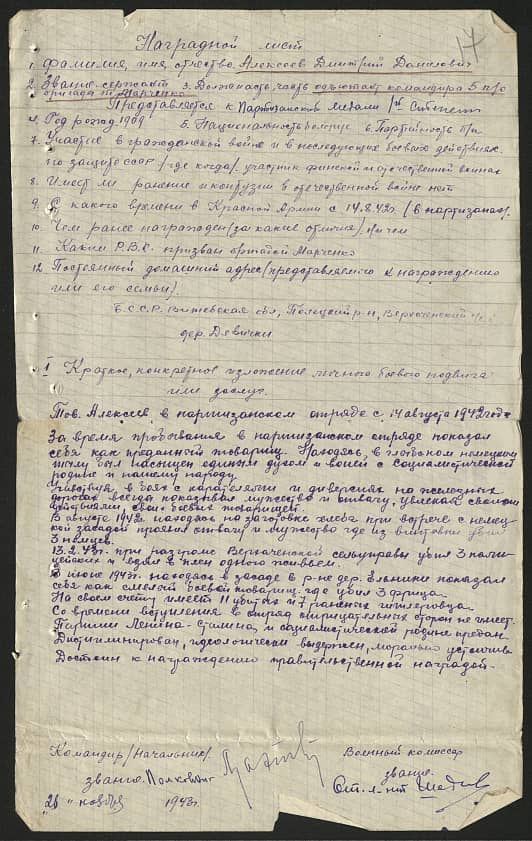 17
Наградной лист
1. Фамилия, имя, отчество Алексеев Дмитрий Данилович
2. Звание сержант 3. Должность, часть адъютант командира 5 п/о
бригада т. Марченко
Представляется к Партизанской медали 1ой степени
4. Год рожд. 1909 5. Национальность белорус 6. Партийность б/п
7. Участие в гражданской войне и в последующих боевых действиях
по защите СССР /где когда/. участник финской и отечественной войнах
8. Имеет ли ранение и контузии в отечественной войне нет
9. С какого времени в Красной Армии с 14.8.42г. /в партизанах/.
10. Чем ранее награжден (за какие отличия) ничем
11. Каким Р.В.К. призван бригадой Марченко
12. Постоянный домашний адрес (представляемого к награждению
или его семьи).
Б.С.С.Р. Витебская обл, Полоцкий р-н, Верховенский с/с
дер. Девички
I Краткое, конкретное изложение личного боевого подвига
или заслуг.
Тов. Алексеев в партизанском отряде с 14 августа 1942 года
За время пребывания в партизанском отряде показал
себя как преданный товарищ. Находясь, в глубоком немецком
тылу был насыщен единым духом и волей с социалистической
родине и нашему народу.
Участвуя, в боях с карателями и диверсиях на железных
дорогах всегда показывал мужество и отвагу, увлекая своими
действиями, своих боевых товарищей.
В августе 1942г. находясь на заготовке хлеба при встрече с немец-
кой засадой проявил отвагу и мужество где из винтовки убил
3 немцев.
13.2.43г. при разгроме Верховенской сельуправы убил 3 поли-
цейских и взял в плен одного живьем.
В июне 1943г. находясь в засаде в р-не дер. Ельники показал
себя как смелый боевой товарищ. где убил 3 фрица.
На своем счету имеет 11 убитых и 7 раненых гитлеровца.
Со времени вступления в отряд отрицательных сторон не имеет.
Партии Ленина-Сталина и социалистической родине предан.
Дисциплинирован, идеологически выдержен, морально устойчив.
Достоин к награждению правительственной наградой.
Командир /Начальник/. Военный комиссар
звание. Полковник звание.
Ст. л-нт
"26" ноября 1943г.